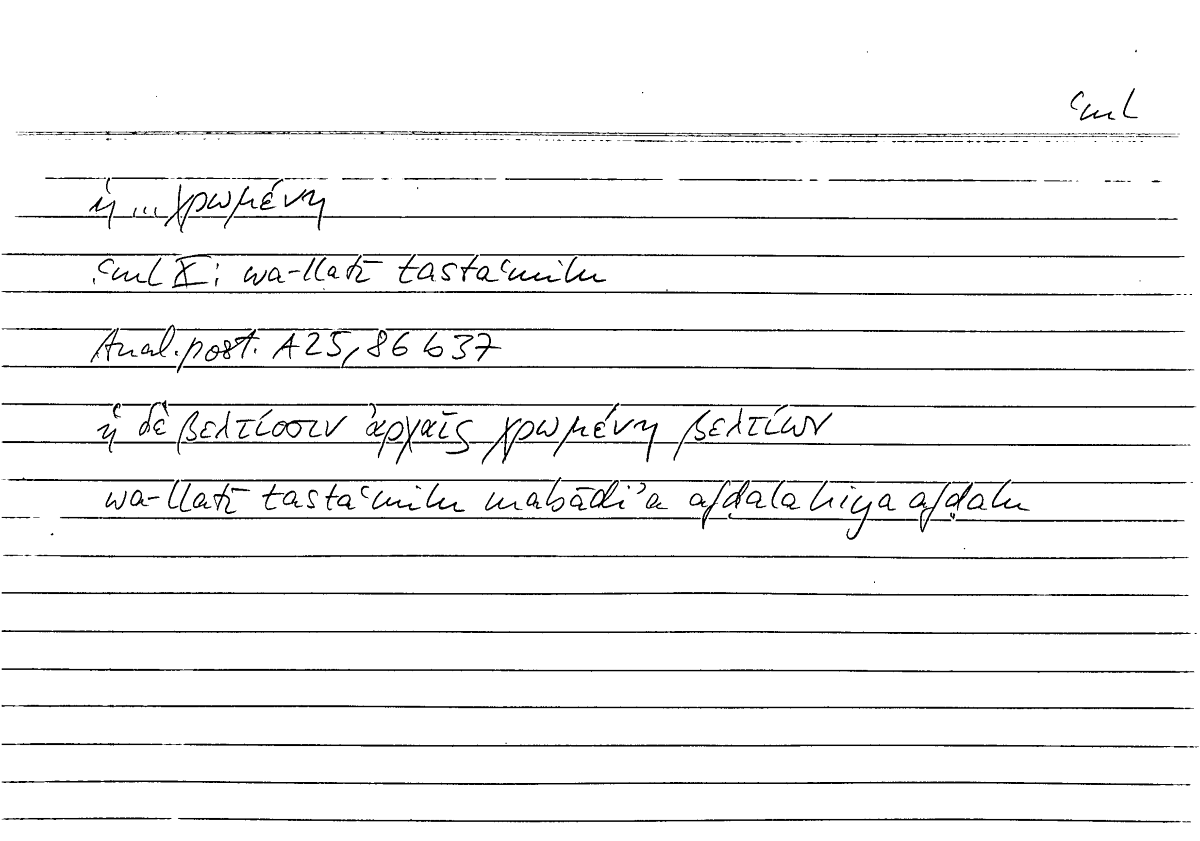 ʿml
ἡ ... χρωμένη
ʿml X: wa-llatī tastaʿmilu
Anal. post. A25, 86 b37
ἡ δὲ βελτίοσιν ἀρχαῖς χρωμένη βελτίων
wa-llatī tastaʿmilu mabādiʾa afḍala hiya afḍalu